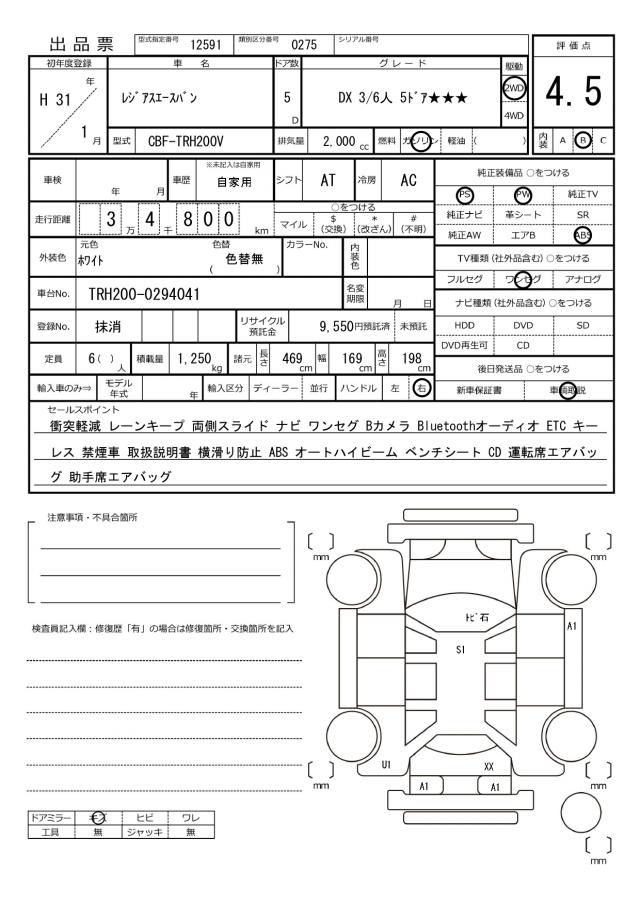 出品票 型式指定番号 12591 類別区分番号 0275 シリアル番号
評価点
4.5
内装 A B C
初年度登録 車名 ドア数 グレード 駆動
H 31 年 1 月 ﾚｼﾞｱｽｴｰｽﾊﾞﾝ 5 D DX 3/6人 5ﾄﾞｱ★★★ 2WD
4WD
型式 CBF-TRH200V 排気量 2,000 cc 燃料 ガソリン 軽油 ( )
車検 年 月 車歴 ※未記入は自家用 自家用 シフト AT 冷房 AC
走行距離 3 万 4 千 8 0 0 km ○をつける
マイル $(交換) *(改ざん) #(不明)
外装色 元色 ﾎﾜｲﾄ 色替 ( 色替無 ) カラーNo. 内装色
車台No. TRH200-0294041 名変期限 月 日
登録No. 抹消 リサイクル預託金 9,550円預託済 未預託
定員 6( )人 積載量 1,250 kg 諸元 長さ 469 cm 幅 169 cm 高さ 198 cm
輸入車のみ⇒ モデル年式 年 輸入区分 ディーラー 並行 ハンドル 左 右
純正装備品 ○をつける
PS PW 純正TV
純正ナビ 革シート SR
純正AW エアB ABS
TV種類 (社外品含む) ○をつける
フルセグ ワンセグ アナログ
ナビ種類 (社外品含む) ○をつける
HDD DVD SD
DVD再生可 CD
後日発送品 ○をつける
新車保証書 車輌取説
セールスポイント
衝突軽減 レーンキープ 両側スライド ナビ ワンセグ Bカメラ Bluetoothオーディオ ETC キー
レス 禁煙車 取扱説明書 横滑り防止 ABS オートハイビーム ベンチシート CD 運転席エアバッ
グ 助手席エアバッグ
注意事項・不具合箇所
検査員記入欄：修復歴「有」の場合は修復箇所・交換箇所を記入
ドアミラー キズ ヒビ ワレ
工具 無 ジャッキ 無
[ ] mm
[ ] mm
ﾄﾋﾞ石
A1
S1
U1
XX
A1
A1
[ ] mm
[ ] mm
[ ] mm